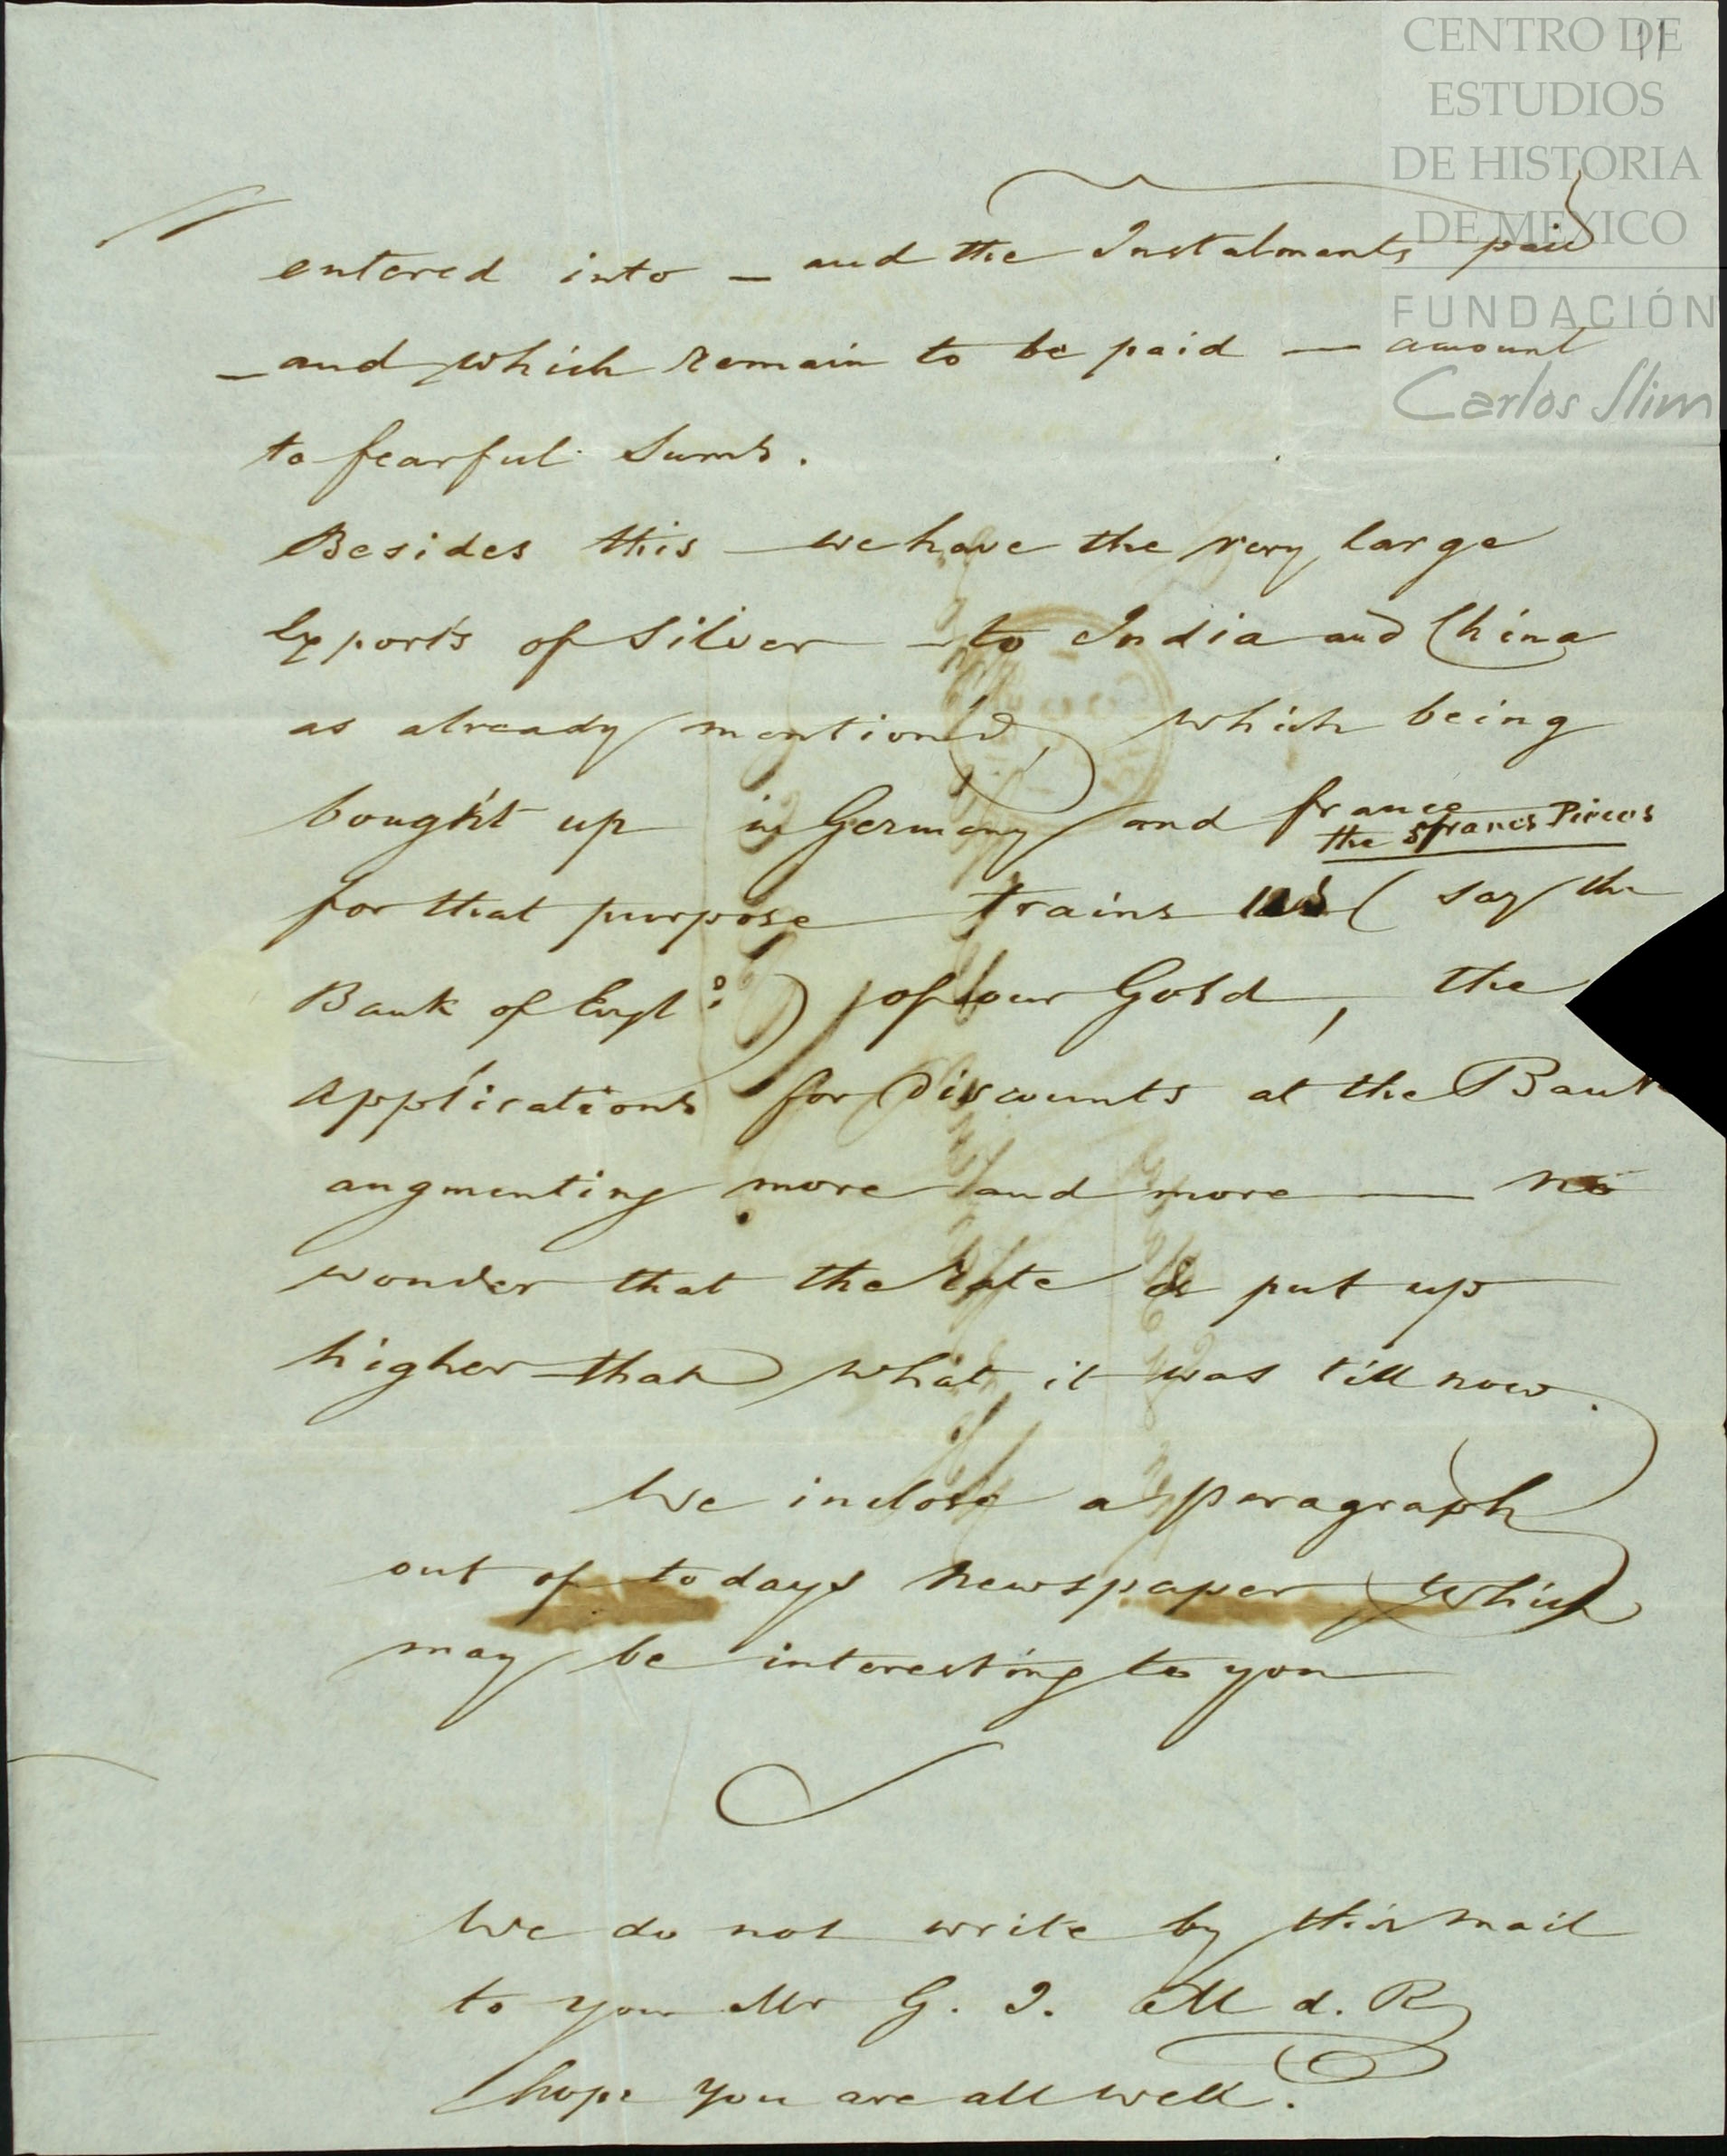 CENTRO DE
ESTUDIOS
DE HISTORIA
DE MEXICO
FUNDACIÓN
Carlos Slim
11
entered into — and the Instalments paid
— and which remain to be paid — amount
to fearful Sums.
Besides this — we have the very large
Exports of Silver — to India and China
as already mentioned, which being
bought up in Germany and france
the 5 francs Pieces
for that purpose trains us ( say the
Bank of Engld ) of our Gold, the
Applications for Discounts at the Bank
augmenting more and more — no
wonder that the Rate is put up
higher than what it was till now.
We inclose a paragraph
out of todays Newspaper which
may be interesting to you
We do not write by this mail
to your Mr G. I. M d. R
hope you are all well.